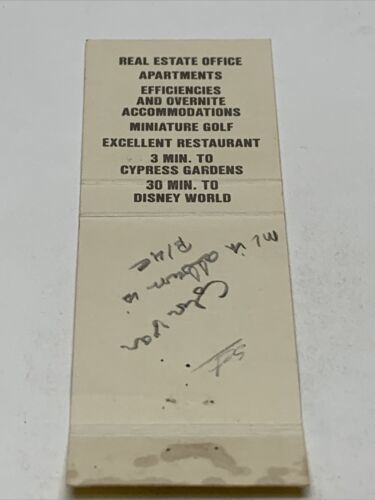 REAL ESTATE OFFICE
APARTMENTS
EFFICIENCIES
AND OVERNITE
ACCOMMODATIONS
MINIATURE GOLF
EXCELLENT RESTAURANT
3 MIN. TO
CYPRESS GARDENS
30 MIN. TO
DISNEY WORLD
album is